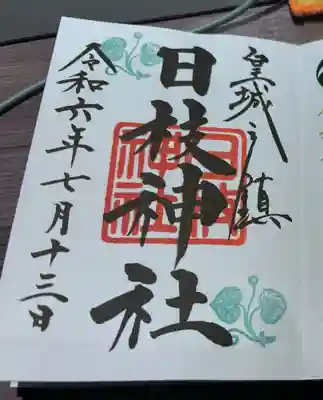 皇城之鎮
日枝神社
令和六年七月十三日